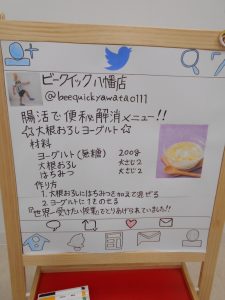 ビークイック八幡店
@beequickyawata0111
腸活で便秘解消メニュー!!
☆大根おろしヨーグルト☆
材料
ヨーグルト(無糖) 200g
大根おろし 大さじ2
はちみつ 大さじ2
作り方
1.大根おろしにはちみつを加えて混ぜる
2.ヨーグルトに1をのせる
『世界一受けたい授業』でとりあげられていました!!